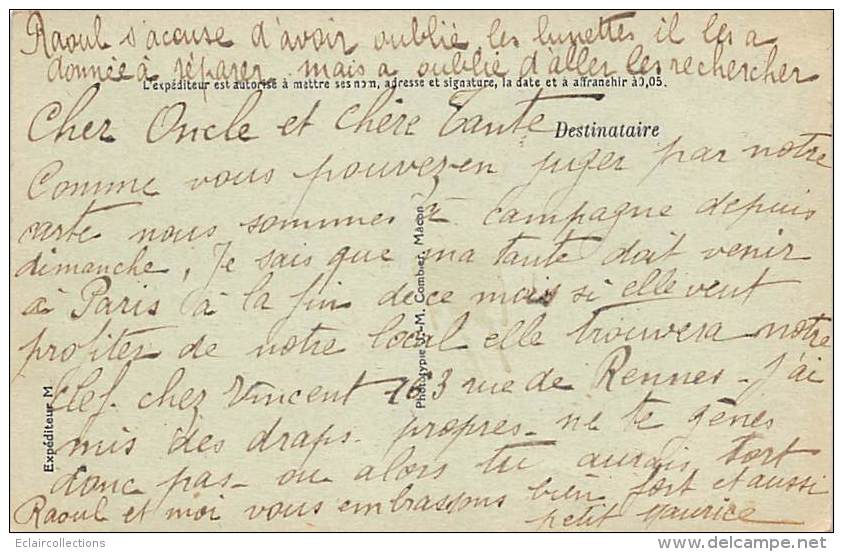 Raoul s'accuse d'avoir oublié les lunettes il les a
donnée à réparer mais a oublié d'aller les rechercher
L'expéditeur est autorisé à mettre ses nom, adresse et signature, la date et à affranchir à 0,05.
Cher Oncle et chère Tante
Destinataire
Comme vous pouvez en juger par notre
carte nous sommes à campagne depuis
dimanche, Je sais que ma tante doit venir
à Paris à la fin de ce mois si elle veut
profiter de notre local elle trouvera notre
clef chez Vincent 163 rue de Rennes - J'ai
mis des draps propres - ne te gênes
donc pas - ou alors tu aurais tort
Raoul et moi vous embrassons bien fort et aussi
petit Maurice
Expéditeur M
Phototypie J.-M. Combier, Mâcon
Eclaircollections
http://www.delcampe.net